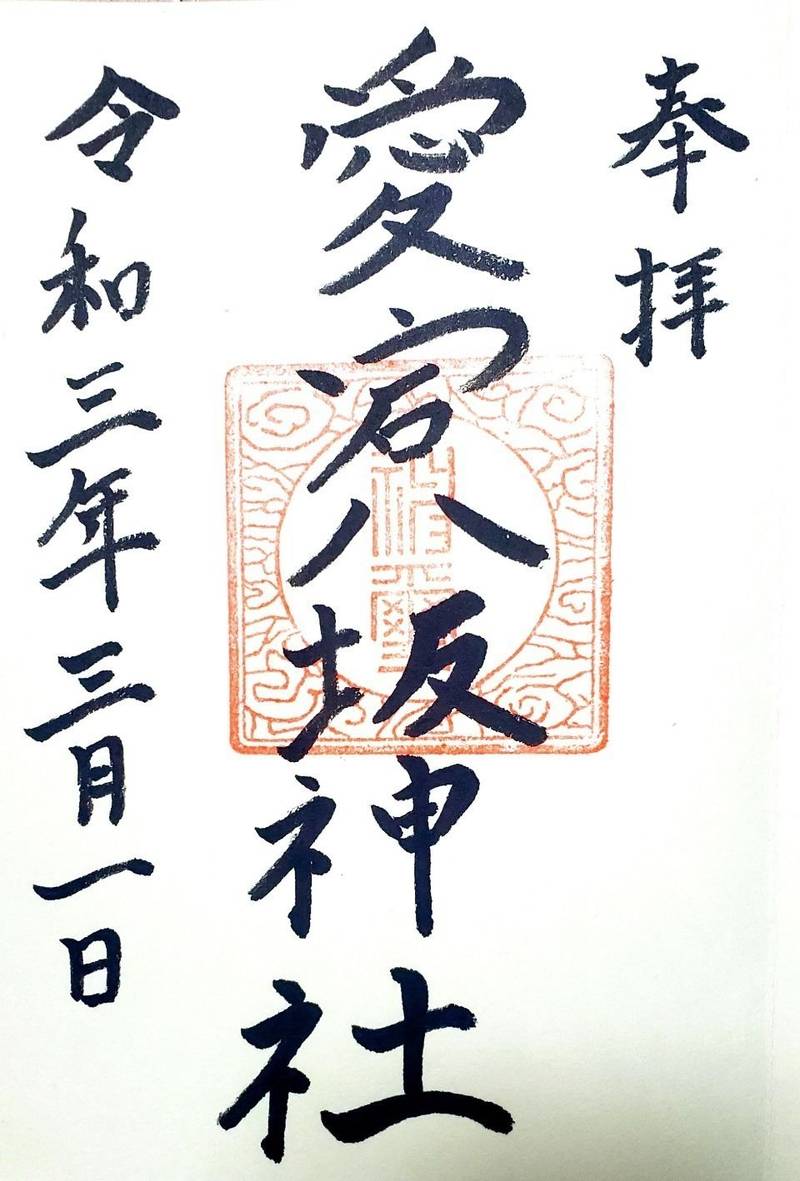 奉拝
愛宕八坂神社
令和三年三月一日